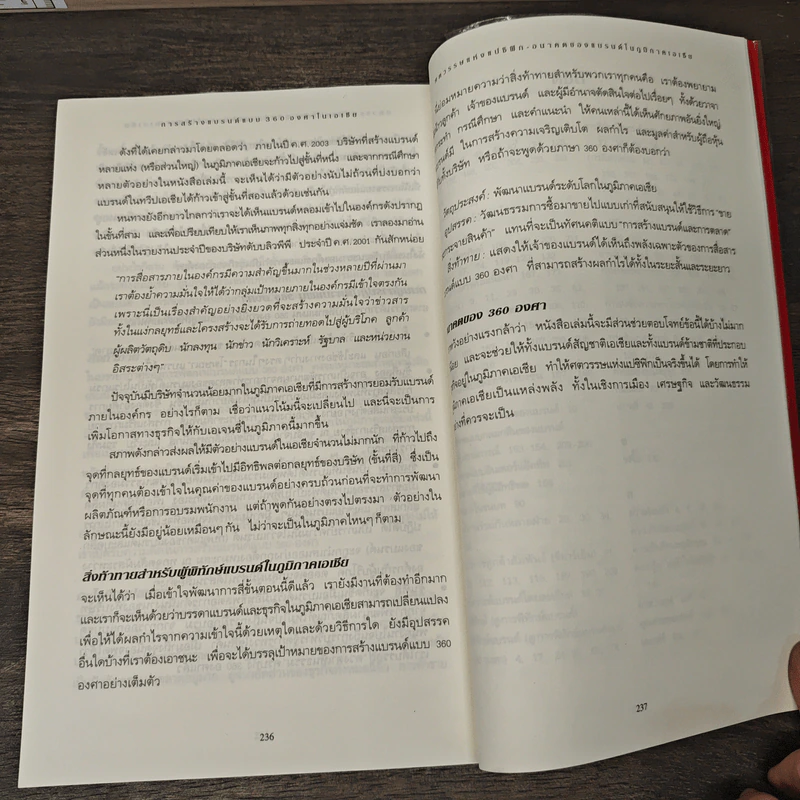 การสร้างแบรนด์แบบ 360 องศาในเอเชีย
ดังที่ได้เคยกล่าวมาโดยตลอดว่า ภายในปี ค.ศ. 2003 บริษัทที่สร้างแบรนด์
หลายแห่ง (หรือส่วนใหญ่) ในภูมิภาคเอเชียจะก้าวไปสู่ขั้นที่หนึ่ง และจากกรณีศึกษา
หลายตัวอย่างในหนังสือเล่มนี้ จะเห็นได้ว่ามีตัวอย่างนับไม่ถ้วนที่บ่งบอกว่า
แบรนด์ในทวีปเอเชียได้ก้าวเข้าสู่ขั้นที่สองแล้วด้วยเช่นกัน
หนทางยังอีกยาวไกลกว่าเราจะได้เห็นแบรนด์หลอมเข้าไปในองค์กรดังปรากฏ
ในขั้นที่สาม และเพื่อเปรียบเทียบให้เราเห็นภาพทุกสิ่งอย่างแจ่มชัด เราลองมาอ่าน
ส่วนหนึ่งในรายงานประจำปีของบริษัทดับบลิวพีพี ประจำปี ค.ศ. 2001 กันสักหน่อย
"การสื่อสารภายในองค์กรมีความสำคัญขึ้นมากในช่วงหลายปีที่ผ่านมา
เราต้องย้ำความมั่นใจให้ได้ว่ากลุ่มเป้าหมายภายในองค์กรมีเข้าใจตรงกัน
เพราะนี่เป็นเรื่องสำคัญอย่างยิ่งยวดที่จะสร้างความมั่นใจว่าข่าวสาร
ทั้งในแง่กลยุทธ์และโครงสร้างจะได้รับการถ่ายทอดไปสู่ผู้บริโภค ลูกค้า
ผู้ผลิตวัตถุดิบ นักลงทุน นักข่าว นักวิเคราะห์ รัฐบาล และหน่วยงาน
อิสระต่างๆ"
ปัจจุบันมีบริษัทจำนวนน้อยมากในภูมิภาคเอเชียที่มีการสร้างการยอมรับแบรนด์
ภายในองค์กร อย่างไรก็ตาม เชื่อว่าแนวโน้มนี้จะเปลี่ยนไป และนี่จะเป็นการ
เพิ่มโอกาสทางธุรกิจให้กับเอเจนซี่ในภูมิภาคนี้มากขึ้น
สภาพดังกล่าวส่งผลให้มีตัวอย่างแบรนด์ในเอเชียจำนวนไม่มากนัก ที่ก้าวไปถึง
จุดที่กลยุทธ์ของแบรนด์เริ่มเข้าไปมีอิทธิพลต่อกลยุทธ์ของบริษัท (ขั้นที่สี่) ซึ่งเป็น
จุดที่ทุกคนต้องเข้าใจในคุณค่าของแบรนด์อย่างครบถ้วนก่อนที่จะทำการพัฒนา
ผลิตภัณฑ์หรือการอบรมพนักงาน แต่ถ้าพูดกันอย่างตรงไปตรงมา ตัวอย่างใน
ลักษณะนี้ยังมีอยู่น้อยเหมือนๆ กัน ไม่ว่าจะเป็นในภูมิภาคไหนๆ ก็ตาม
สิ่งท้าทายสำหรับผู้พิทักษ์แบรนด์ในภูมิภาคเอเชีย
จะเห็นได้ว่า เมื่อเข้าใจพัฒนาการสี่ขั้นตอนนี้ดีแล้ว เรายังมีงานที่ต้องทำอีกมาก
และเราก็จะเห็นด้วยว่าบรรดาแบรนด์และธุรกิจในภูมิภาคเอเชียสามารถเปลี่ยนแปลง
เพื่อให้ได้ผลกำไรจากความเข้าใจนี้ด้วยเหตุใดและด้วยวิธีการใด ยังมีอุปสรรค
อื่นใดบ้างที่เราต้องเอาชนะ เพื่อจะได้บรรลุเป้าหมายของการสร้างแบรนด์แบบ 360
องศาอย่างเต็มตัว
236
ศตวรรษแห่งแปซิฟิก-อนาคตของแบรนด์ในภูมิภาคเอเชีย
หมายความว่าสิ่งท้าทายสำหรับพวกเราทุกคนคือ เราต้องพยายาม
ลูกค้า เจ้าของแบรนด์ และผู้มีอำนาจตัดสินใจต่อไปเรื่อยๆ ทั้งด้วยวาจา
กรณีศึกษา และคำแนะนำ ให้คนเหล่านี้ได้เห็นศักยภาพอันยิ่งใหญ่
ในการสร้างความเจริญเติบโต ผลกำไร และมูลค่าสำหรับผู้ถือหุ้น
บริษัท หรือถ้าจะพูดด้วยภาษา 360 องศาก็ต้องบอกว่า
วัตถุประสงค์ : พัฒนาแบรนด์ระดับโลกในภูมิภาคเอเชีย
อุปสรรค : วัฒนธรรมการซื้อมาขายไปแบบเก่าที่สนับสนุนให้ใช้วิธีการ "ขาย
กระจายสินค้า" แทนที่จะเป็นทัศนคติแบบ "การสร้างแบรนด์และการตลาด"
สิ่งท้าทาย : แสดงให้เจ้าของแบรนด์ได้เห็นถึงพลังเฉพาะตัวของการสื่อสาร
แบรนด์แบบ 360 องศา ที่สามารถสร้างผลกำไรได้ทั้งในระยะสั้นและระยะยาว
อนาคตของ 360 องศา
หวังอย่างแรงกล้าว่า หนังสือเล่มนี้จะมีส่วนช่วยตอบโจทย์ข้อนี้ได้บ้างไม่มาก
น้อย และจะช่วยให้ทั้งแบรนด์สัญชาติเอเชียและทั้งแบรนด์ข้ามชาติที่ประกอบ
อยู่ในภูมิภาคเอเชีย ทำให้ศตวรรษแห่งแปซิฟิกเป็นจริงขึ้นได้ โดยการทำให้
ภูมิภาคเอเชียเป็นแหล่งพลัง ทั้งในเชิงการเมือง เศรษฐกิจ และวัฒนธรรม
อย่างที่ควรจะเป็น
237